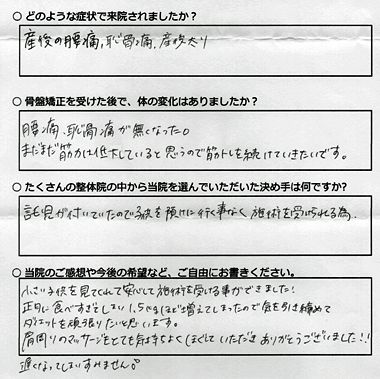 ○ どのような症状で来院されましたか？
産後の腰痛、恥骨痛、産後太り
○ 骨盤矯正を受けた後で、体の変化はありましたか？
腰痛、恥骨痛が無くなった。
まだまだ筋力は低下していると思うので筋トレを続けていきたいです。
○ たくさんの整体院の中から当院を選んでいただいた決め手は何ですか?
託児が付いていたので子供を預けに行く事なく施術を受けられる為。
○ 当院のご感想や今後の希望など、ご自由にお書きください。
小さい子供を見てくれて安心して施術を受ける事ができました!
正月に食べすぎてしまい1.5キロほど増えてしまったので気を引き締めて
ダイエットを頑張りたいと思います。
肩周りのマッサージもとても気持ちよくほぐしていただきありがとうございました!!
遅くなってしまいすみません。